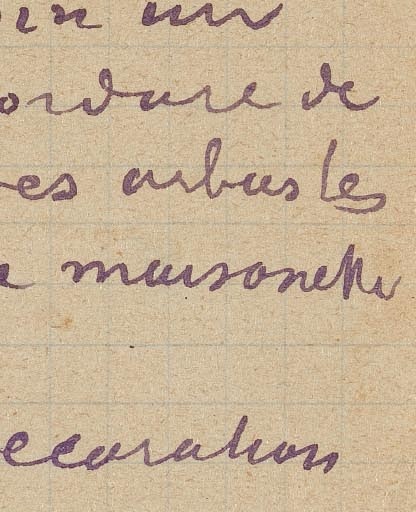 un
ordure de
es arbustes
maisonette
ecoration